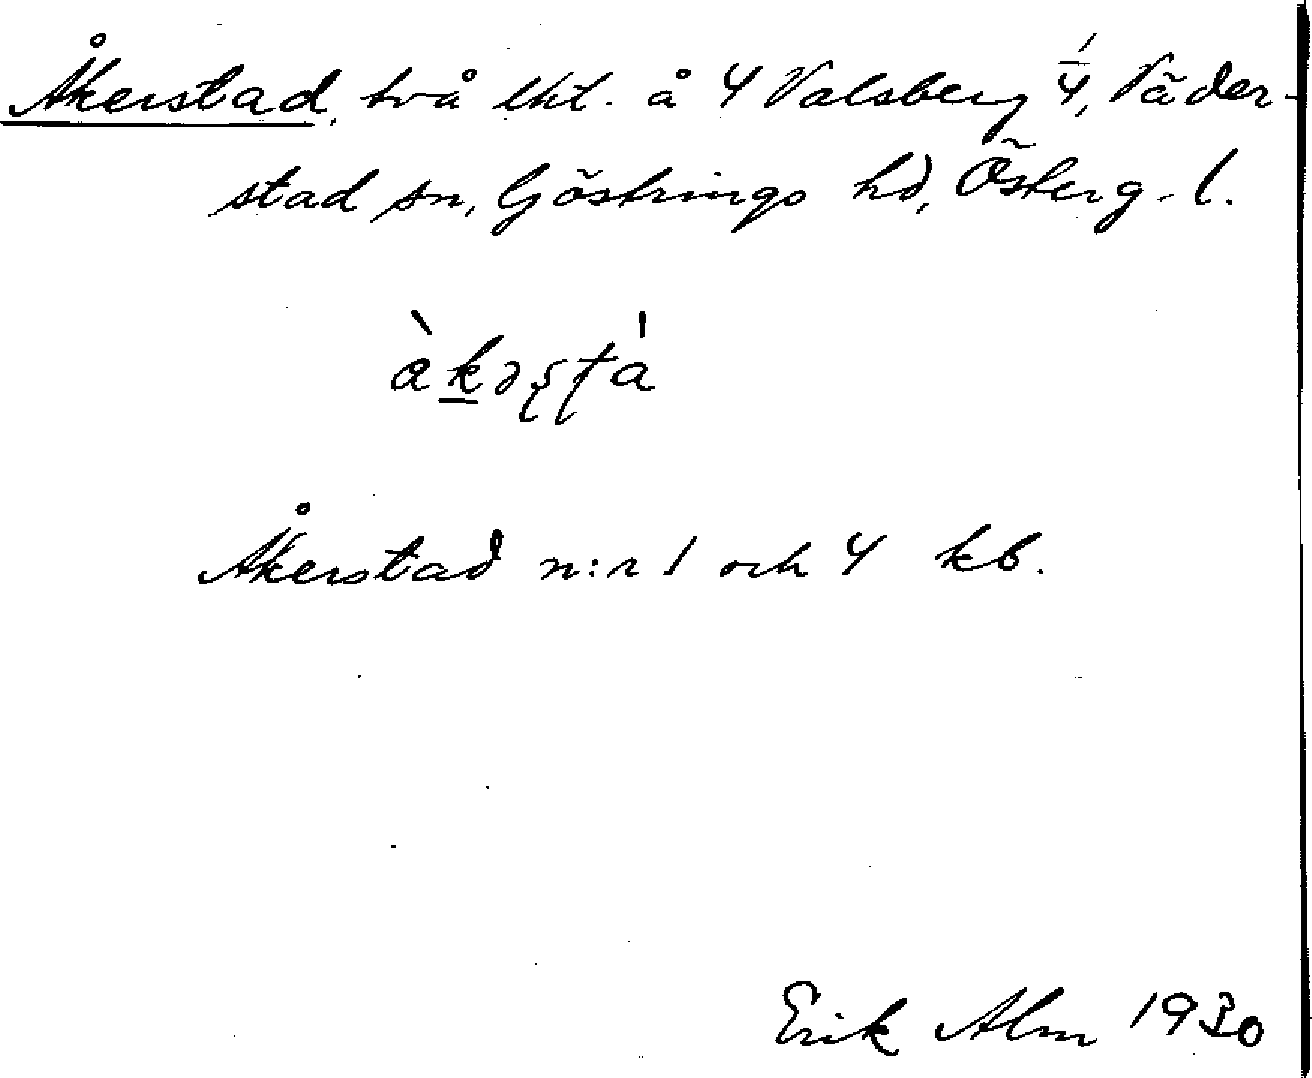 Åkerstad, två lht. å 4 Valsberg 1/4, Väder-
stad sn, Göstrings hd, Österg. l.
àkəʂʈa
Åkerstad n:r 1 och 4 kb.
Erik Alm 1930